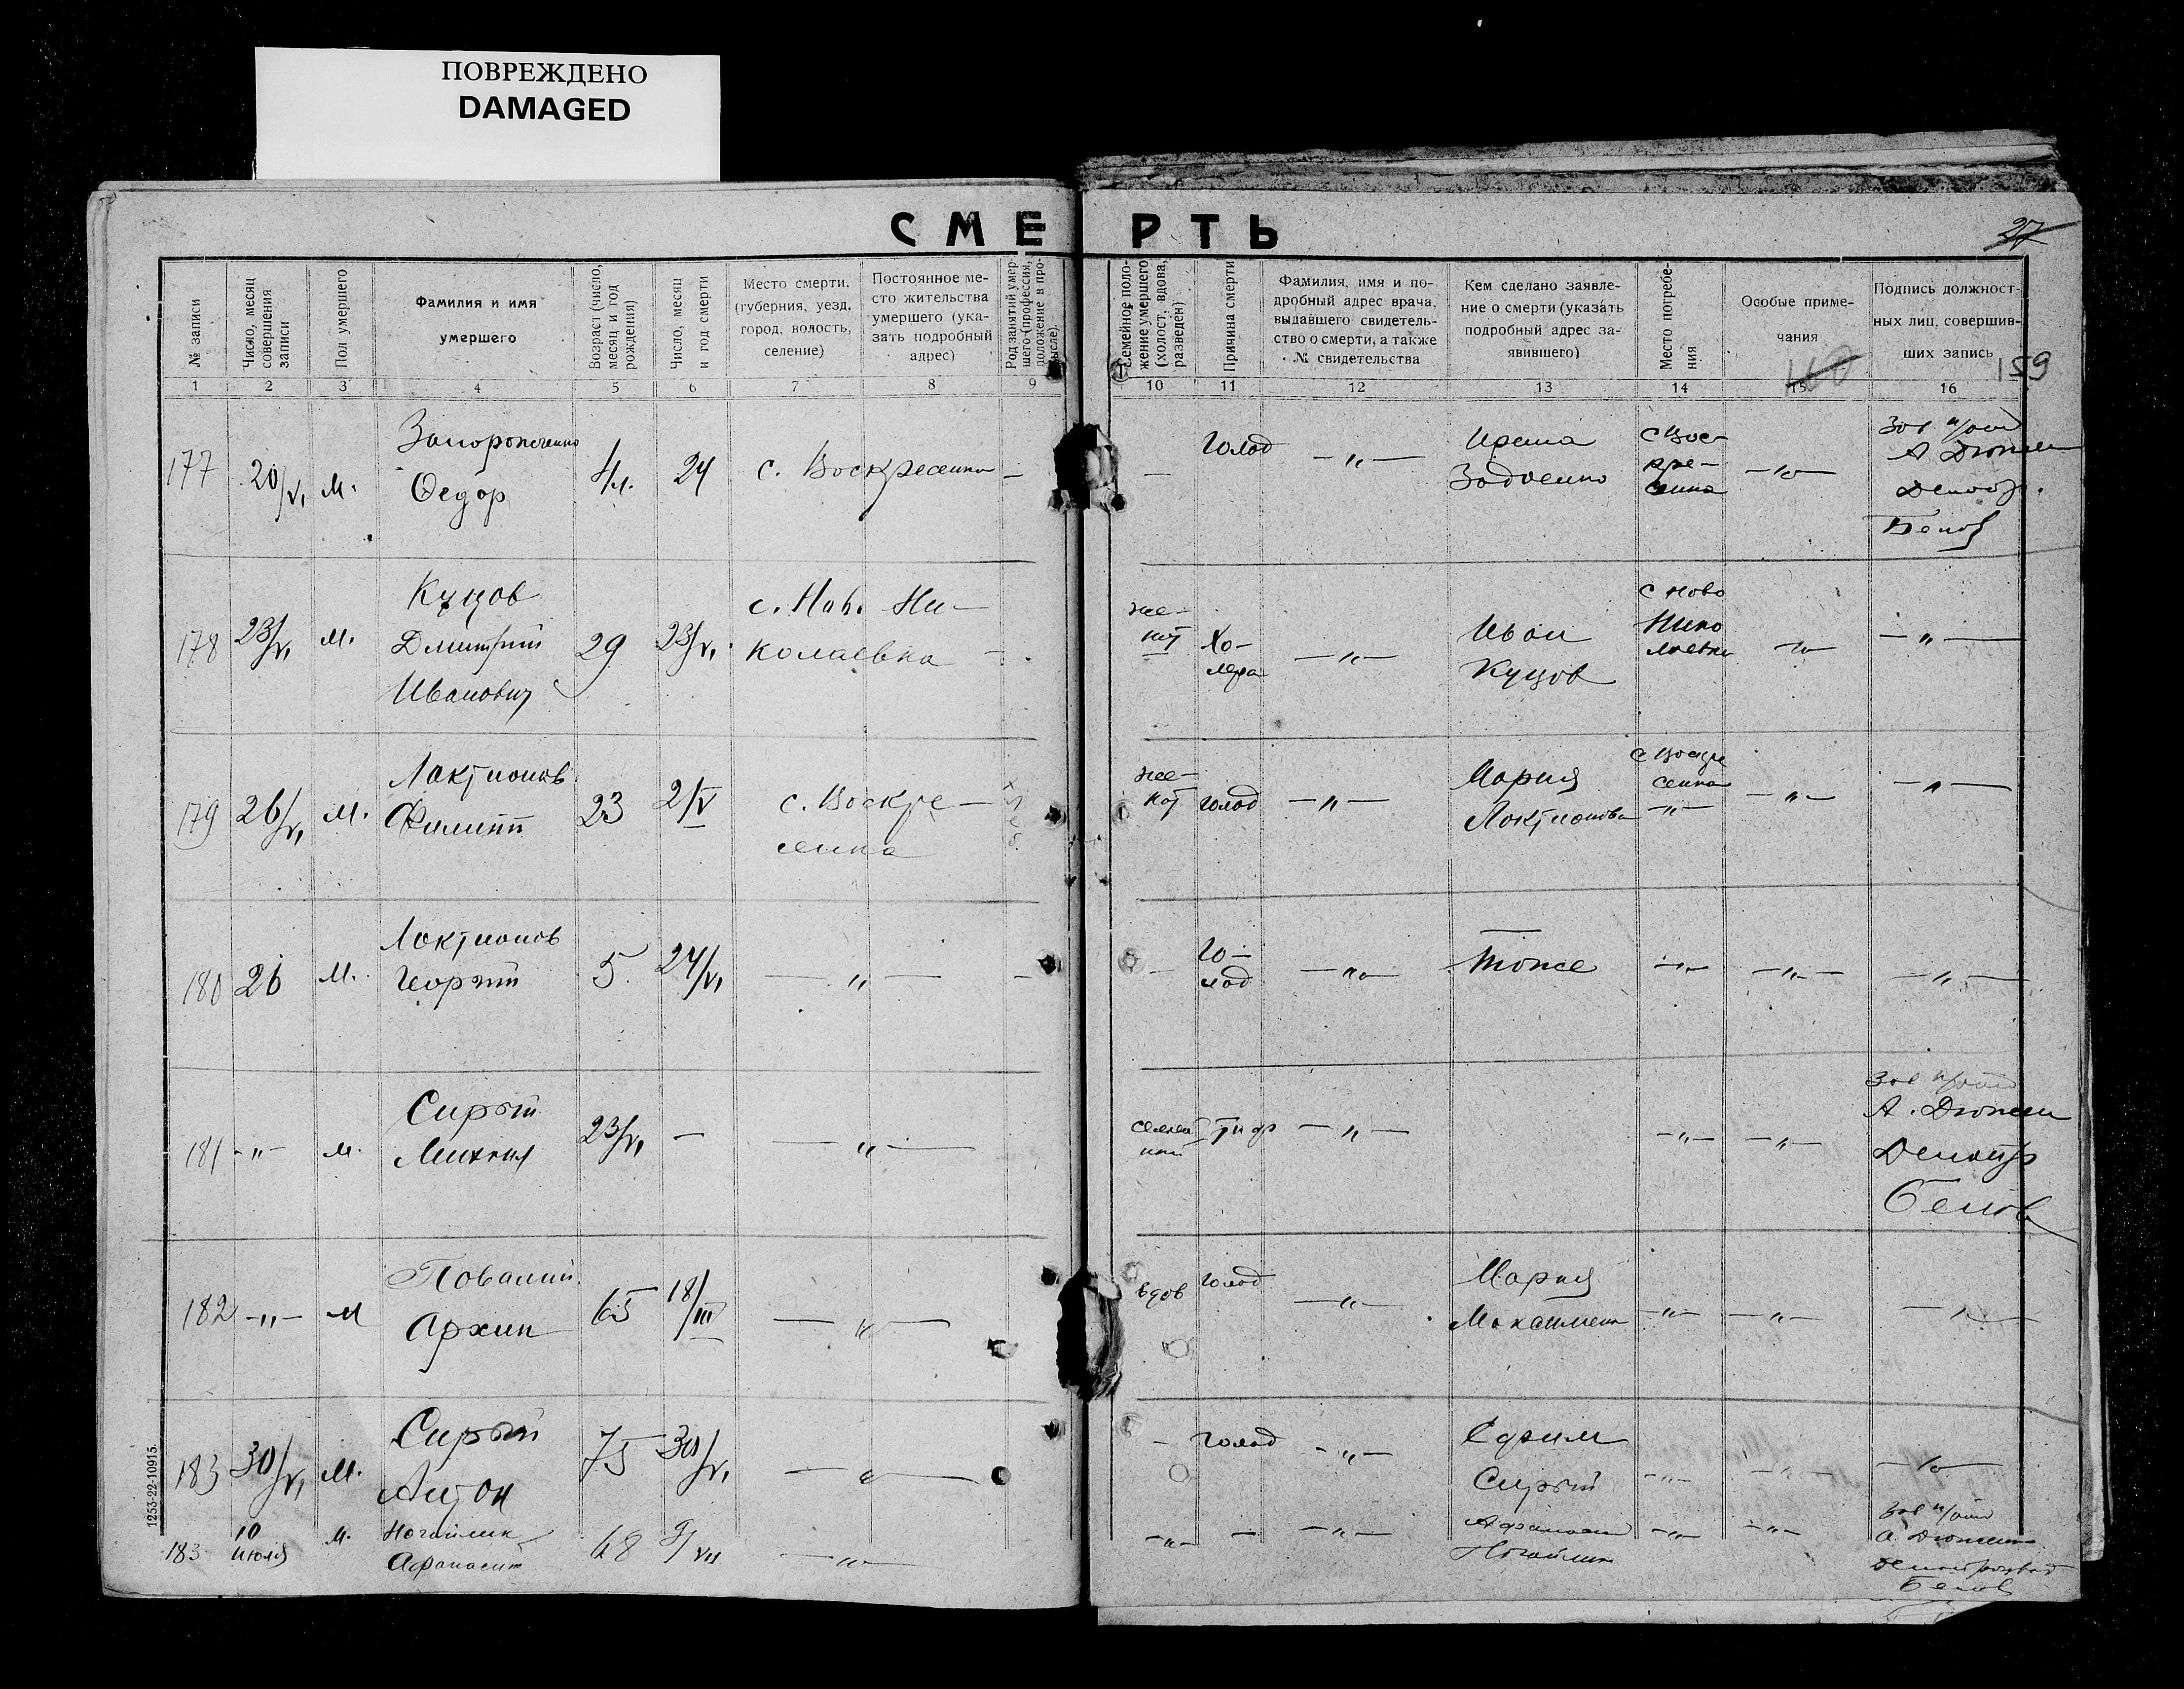 ПОВРЕЖДЕНО
DAMAGED
СМЕРТЬ
27
№ записи
Число, месяц совершения записи
Пол умершего
Фамилия и имя умершего
Возраст (число, месяц и год рождения)
Число, месяц и год смерти
Место смерти. (губерния, уезд, город, волость, селение)
Постоянное место жительства умершего (указать подробный адрес)
Род занятий умершего (профессия, положение в промысле).
Семейное положение умершего (холост, вдова, разведен)
Причина смерти
Фамилия, имя и подробный адрес врача, выдавшего свидетельство о смерти, а также № свидетельства
Кем сделано заявление о смерти (указать подробный адрес заявившего)
Место погребения
Особые примечания
Подпись должностных лиц, совершивших запись
159
1 2 3 4 5 6 7 8 9 10 11 12 13 14 15 16
177 20/VI м. Федор 4 л. 24 с. Воскресенка — — Голод —„— Задоенко с Воскресенка —„—
Белов
178 23/VI м. Куцов Дмитрий Иванович 29 23/VI с. Нов. Николаевка — женат Холера —„— Иван Куцов с Ново Николаевка —„— —„—
179 26/VI м. Локтионов Филипп 23 2/V с. Воскресенка хлеб женат голод —„— Мария Локтионова с Воскресенка —„— —„— —„—
180 26 м. Локтионов Георгий 5 24/VI —„— — — Голод —„— тоже —„— —„— —„—
181 —„— м. Сирый Михаил 23/VI — —„— семейный тиф —„— —„— —„—
Белов
182 —„— м Повалий Архип 65 18/III —„— вдов голод —„— Мария —„— —„— —„—
183 30/VI м. Сирый Антон 75 30/VI —„— — голод —„— Ефим Сирый —„— —„— —„—
183 10 июля м. Афанасий 68 9/VII —„— —„— — —„— —„— —„—
Белов
1253-22-10915.